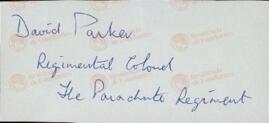 David Parker
Regimental Colonel
The Parachute Regiment